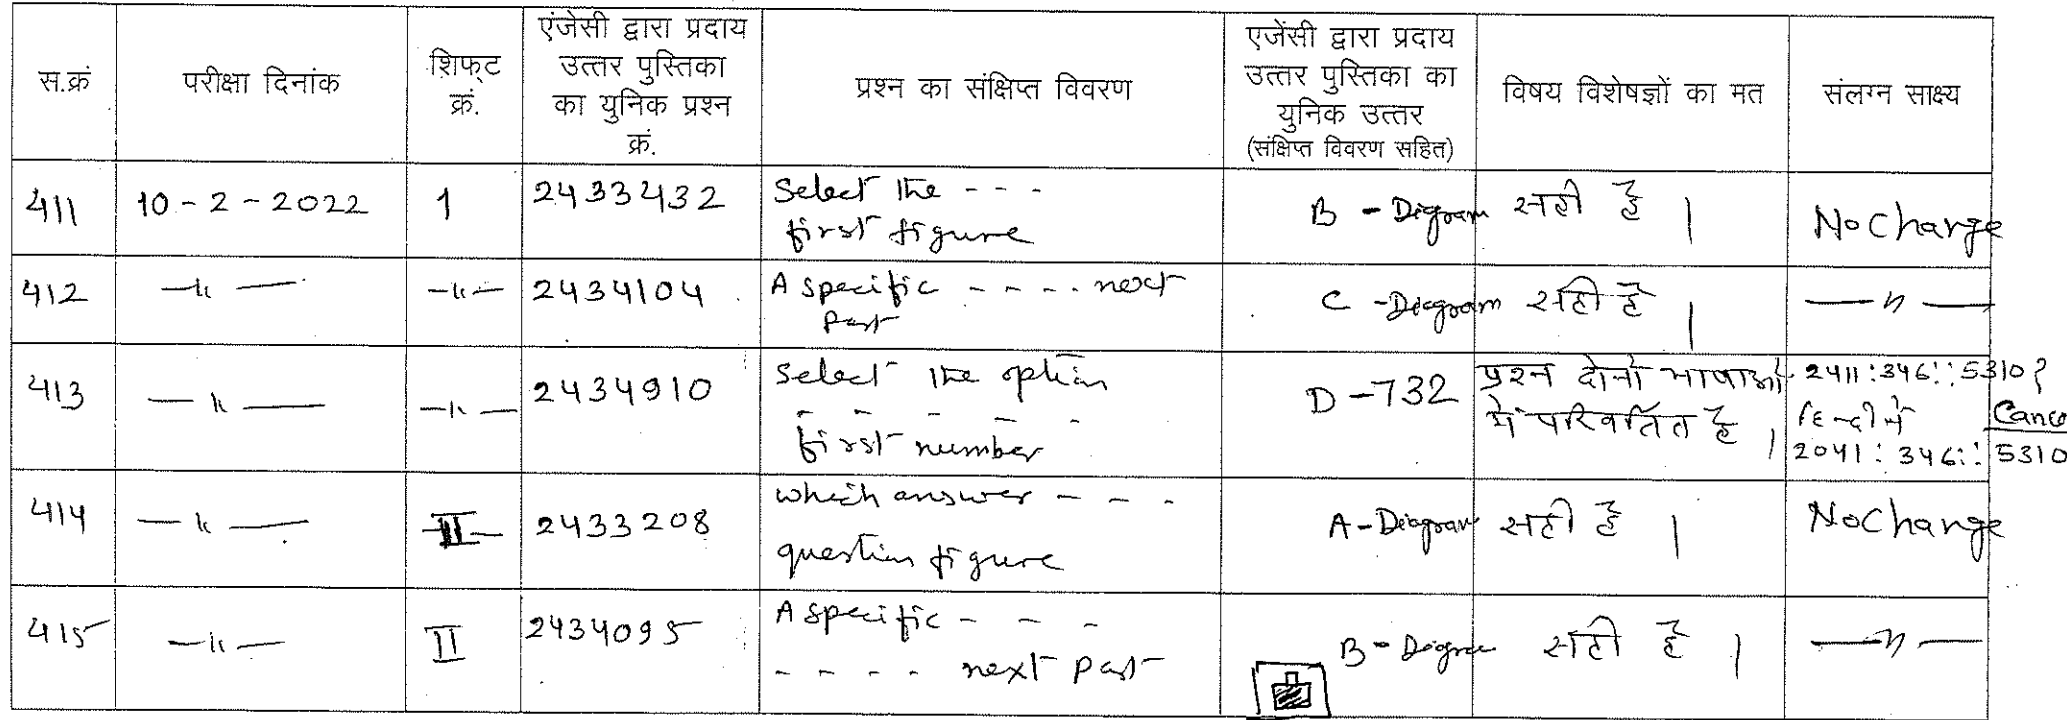 स.क्रं
परीक्षा दिनांक
शिफ्ट
क्रं.
एंजेसी द्वारा प्रदाय
उत्तर पुस्तिका
का युनिक प्रश्न
क्रं.
प्रश्न का संक्षिप्त विवरण
एजेंसी द्वारा प्रदाय
उत्तर पुस्तिका का
युनिक उत्तर
(संक्षिप्त विवरण सहित)
विषय विशेषज्ञों का मत
संलग्न साक्ष्य
411
10-2-2022
1
2433432
Select the ---
first figure
B - Digram
सही है।
No Change
412
—"—
—"—
2434104
A specific ---- next
Part
C - Diagram
सही है।
—"—
413
—"—
—"—
2434910
Select the option
- - - - -
first number
D-732
प्रश्न दोनो भाषाओं
में परिवर्तित है।
2411:346::5310?
हिन्दी में
2041:346::5310
414
—"—
II
2433208
which answer ---
question figure
A-Diagram
सही है।
No Change
415
—"—
II
2434095
A specific - - -
- - - - next part
सही है।
—"—